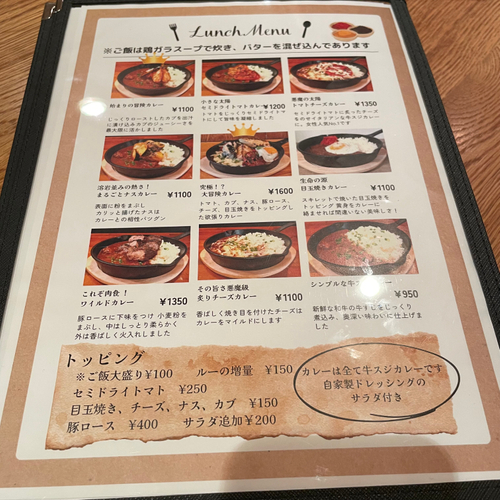 Lunch Menu
※ご飯は鶏ガラスープで炊き、バターを混ぜ込んであります
始まりの冒険カレー ¥1100
じっくりローストしたカブを出汁に
最大限に活かしました
小さな太陽
セミドライトマトカレー ¥1200
トマトをじっくりセミドライトマト
にして旨味を凝縮しました
悪魔の太陽
トマトチーズカレー ¥1350
セミドライトマトに炙ったチーズ
をのせイタリアンな牛スジカレー
に。女性人気No.1です
溶岩並みの熱さ！
まるごとナスカレー ¥1100
表面に粉をまぶし
カリッと揚げたナスは
カレーとの相性バツグン
究極！？
大冒険カレー ¥1600
トマト、カブ、ナス、豚ロース、
チーズ、目玉焼きをトッピングし
た欲張りカレー
生命の源
目玉焼きカレー ¥1100
スキレットで焼いた目玉焼きを
トッピング 黄身をカレーに
絡ませれば間違いない美味しさ！
これぞ肉食！
ワイルドカレー ¥1350
豚ロースに下味をつけ 小麦粉を
まぶし、中はしっとり柔らかく
外は香ばしく火入れしました
その旨さ悪魔級
炙りチーズカレー ¥1100
香ばしく焼き目を付けたチーズは
カレーをマイルドにします
シンプルな牛 ¥950
新鮮な和牛の牛すじをじっくり
煮込み、奥深い味わいに仕上げま
した
トッピング
※ご飯大盛り¥100 ルーの増量 ¥150
セミドライトマト ¥250
目玉焼き、チーズ、ナス、カブ ¥150
豚ロース ¥400 サラダ追加¥200
カレーは全て牛スジカレーです
自家製ドレッシングの
サラダ付き